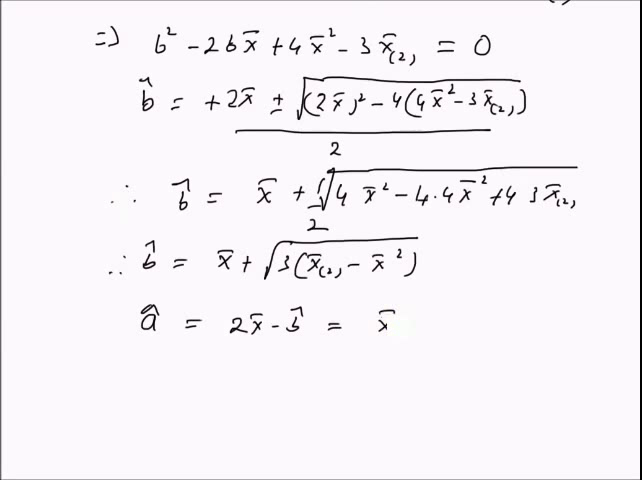 => b² - 2bx̄ + 4x̄² - 3x̄₍₂₎ = 0
b̂ = +2x̄ ± √((2x̄)² - 4(4x̄² - 3x̄₍₂₎)) / 2
∴ b̂ = x̄ + 1/2 √(4x̄² - 4·4x̄² + 4 3x̄₍₂₎)
∴ b̂ = x̄ + √(3(x̄₍₂₎ - x̄²))
â = 2x̄ - b̂ = x̄